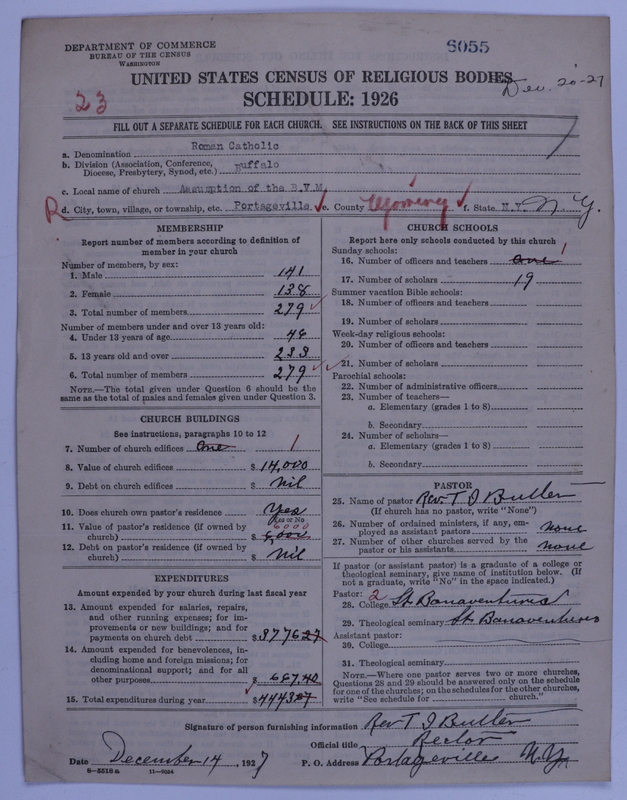 DEPARTMENT OF COMMERCE
BUREAU OF THE CENSUS
WASHINGTON
6055
UNITED STATES CENSUS OF RELIGIOUS BODIES
Dec. 20-27
23
SCHEDULE: 1926
FILL OUT A SEPARATE SCHEDULE FOR EACH CHURCH. SEE INSTRUCTIONS ON THE BACK OF THIS SHEET
a. Denomination Roman Catholic
b. Division (Association, Conference, Diocese, Presbytery, Synod, etc.) Buffalo
c. Local name of church Assumption of the B.V.M.
R d. City, town, village, or township, etc. Portageville e. County Wyoming f. State N.Y. N.Y.
MEMBERSHIP
Report number of members according to definition of
member in your church
Number of members, by sex:
1. Male 141
2. Female 138
3. Total number of members 279
Number of members under and over 13 years old:
4. Under 13 years of age 46
5. 13 years old and over 233
6. Total number of members 279
NOTE.—The total given under Question 6 should be the
same as the total of males and females given under Question 3.
CHURCH BUILDINGS
See instructions, paragraphs 10 to 12
7. Number of church edifices One 1
8. Value of church edifices $ 14,000
9. Debt on church edifices $ nil
10. Does church own pastor's residence Yes
Yes or No
11. Value of pastor's residence (if owned by 6000
church) $ 6,000
12. Debt on pastor's residence (if owned by
church) $ Nil
EXPENDITURES
Amount expended by your church during last fiscal year
13. Amount expended for salaries, repairs,
and other running expenses; for im-
provements or new buildings; and for
payments on church debt $ 3776 27
14. Amount expended for benevolences, in-
cluding home and foreign missions; for
denominational support; and for all
other purposes $ 667.40
15. Total expenditures during year $ 4443 07
CHURCH SCHOOLS
Report here only schools conducted by this church
Sunday schools: 1
16. Number of officers and teachers One
17. Number of scholars 19
Summer vacation Bible schools:
18. Number of officers and teachers
19. Number of scholars
Week-day religious schools:
20. Number of officers and teachers
21. Number of scholars
Parochial schools:
22. Number of administrative officers
23. Number of teachers—
a. Elementary (grades 1 to 8)
b. Secondary
24. Number of scholars—
a. Elementary (grades 1 to 8)
b. Secondary
PASTOR
25. Name of pastor Rev. T J Butler
(If church has no pastor, write "None")
26. Number of ordained ministers, if any, em-
ployed as assistant pastors none
27. Number of other churches served by the
pastor or his assistants none
If pastor (or assistant pastor) is a graduate of a college or
theological seminary, give name of institution below. (If
not a graduate, write "No" in the space indicated.)
Pastor: 2
28. College St Bonaventures
29. Theological seminary St Bonaventures
Assistant pastor:
30. College
31. Theological seminary
NOTE.—Where one pastor serves two or more churches,
Questions 28 and 29 should be answered only on the schedule
for one of the churches; on the schedules for the other churches,
write "See schedule for church."
Signature of person furnishing information Rev T J Butler
Official title Rector
Date December 14, 1927 P. O. Address Portageville N.Y.
8-5518a 11-9034